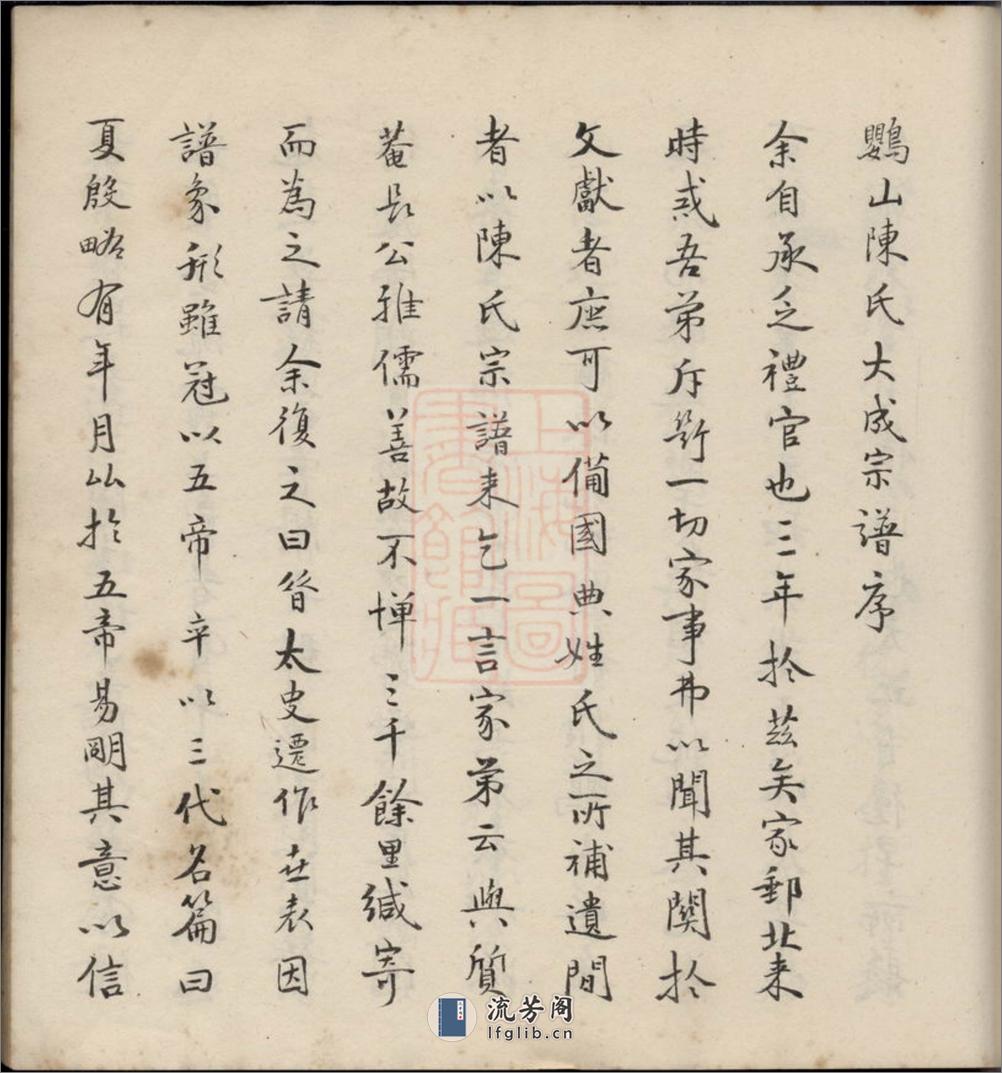 鸚山陳氏大成宗譜序
余自承乏禮官也三年扵茲矣家郵北来
時戒吾弟斥斷一切家事弗以聞其関扵
文獻者庶可以備國典姓氏之所補遺間
者以陳氏宗譜来乞一言家弟云與質
菴長公雅儒善故不憚三千餘里緘寄
而為之請余復之曰昔太史遷作世表因
譜象形雖冠以五帝卒以三代名篇曰
夏殷略有年月以扵五帝易明其意以信
上海圖
書館藏
流芳阁
lfglib.cn